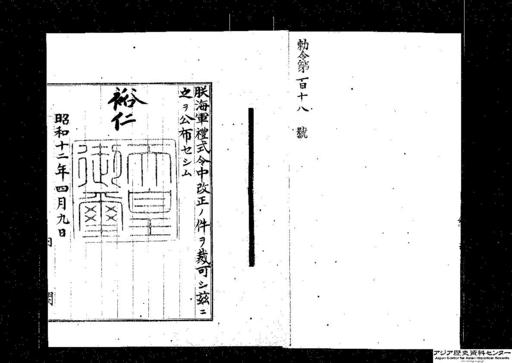 勅令第百十八號
朕海軍禮式令中改正ノ件ヲ裁可シ茲ニ
之ヲ公布セシム
裕仁
天皇御璽
昭和十二年四月九日
内閣
アジア歴史資料センター
Japan Center for Asian Historical Records